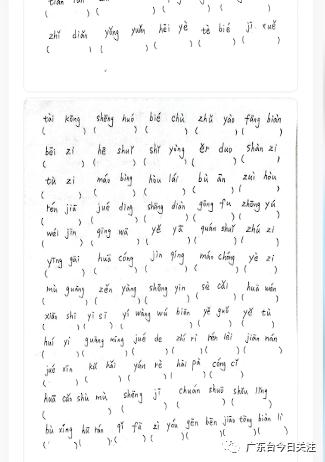 zhǐ diǎn yǒng yuǎn hēi yè tè bié jī xuě
tài kōng shēng huó bié chù zhǔ yào fāng biàn
bēi zi hē shuǐ shí yòng ěr duo shàn zi
tù zi máo bìng hòu lái bù ān zuì hòu
rén jiā jué dìng shāng diàn gōng fu zhōng yú
wéi jīn qīng wā yě yā quán shuǐ zhú zi
yīng gāi huā cóng jìn qíng máo chóng yè zi
mù guāng zěn yàng shēng yin sè cǎi huà wén
xiān shi yì sī yí wàng wú biān yě guǒ yě tù
huí yì guāng míng jué de zhí rì rén lèi jiān nán
jué xīn kū hài yán rè hài pà cóng cǐ
huā cǎo shù mù shēng jī chuán shuō shǒu lǐng
bù xíng hū rán qǐ fā zì yóu gēn běn jiāo tōng biàn lì
广东台今日关注